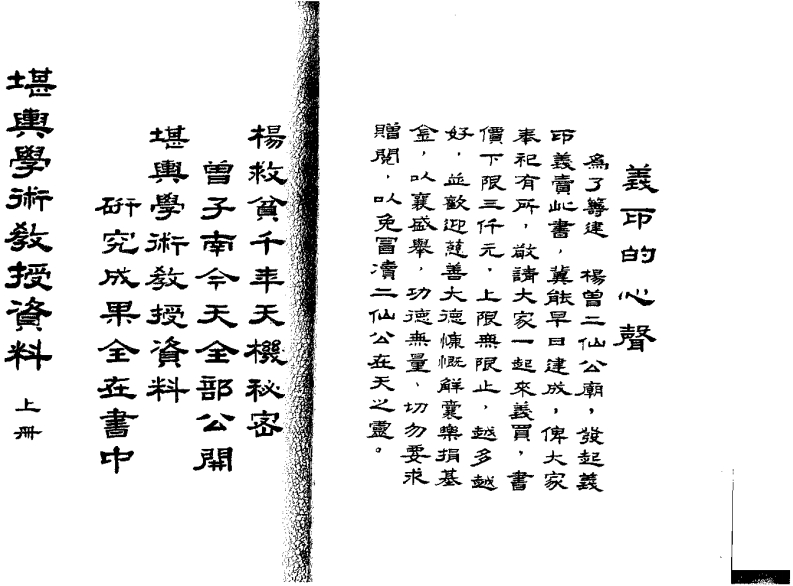 義印的心聲
為了籌建　楊曾二仙公廟，發起義
印義賣此書，冀能早日建成，俾大家
奉祀有所，敬請大家一起來義買，書
價下限三仟元，上限無限止，越多越
好，並歡迎慈善大德慷慨解囊樂捐基
金，以襄盛舉，功德無量、切勿要求
贈閱，以免冒瀆二仙公在天之靈。
楊救貧千年天機秘密
曾子南今天全部公開
堪輿學術教授資料
研究成果全在書中
堪輿學術教授資料 上冊